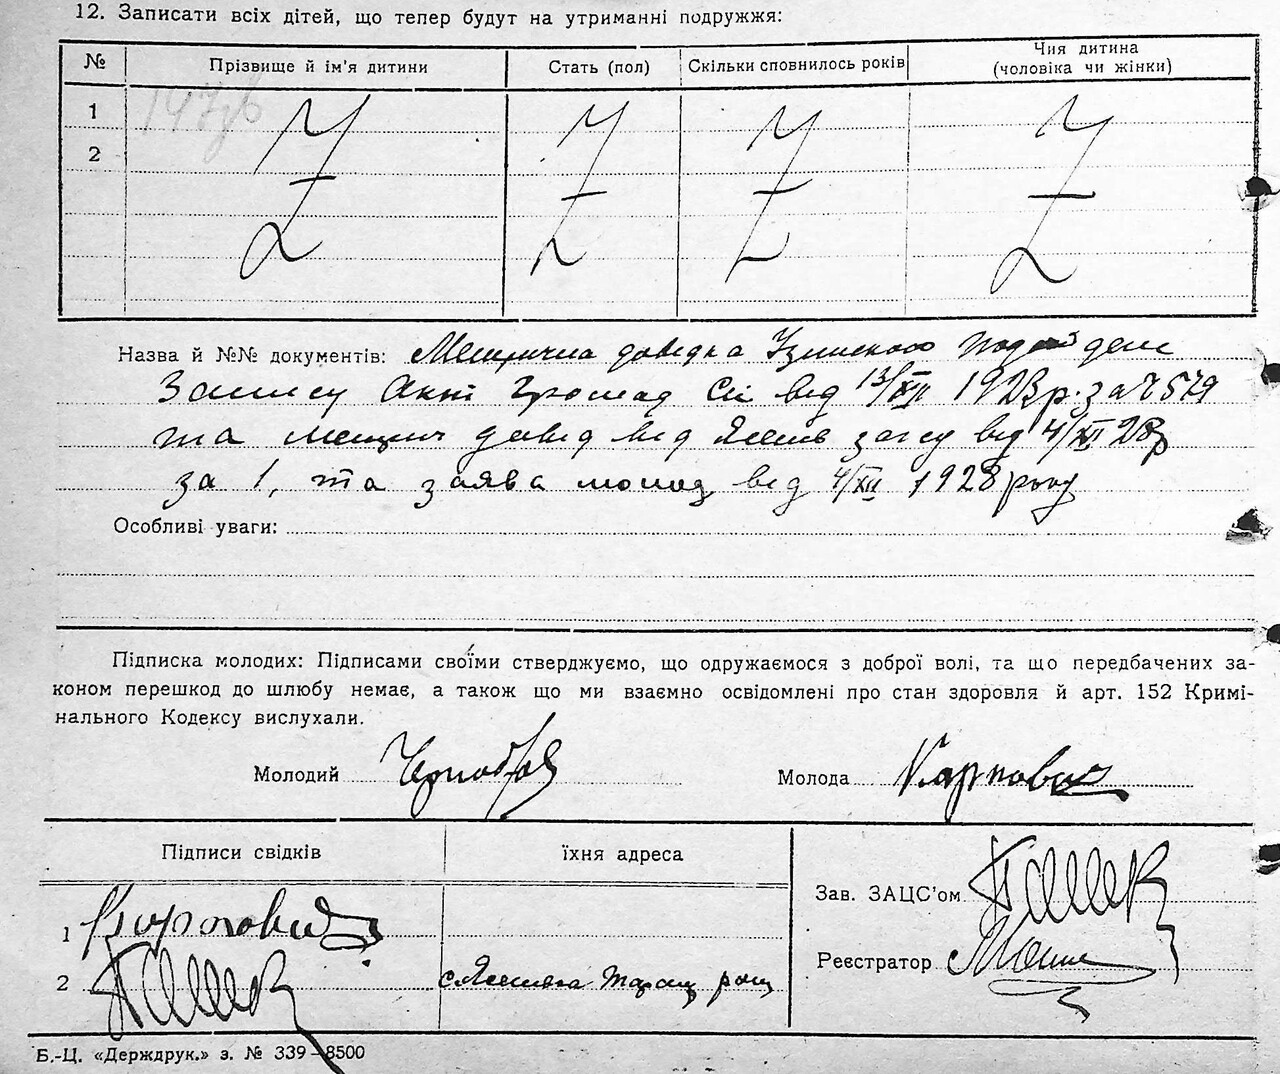 12. Записати всіх дітей, що тепер будут на утриманні подружжя:
№ Прізвище й ім'я дитини Стать (пол) Скільки сповнилось років Чия дитина (чоловіка чи жінки)
1
2
Назва й №№ документів: Метрична довідка
Запису Акт Громад Ст від 13/XII 1923 р. за № 579
та метрич довід від загсу від 4/XI 28 р
за 1, та заява молод від 4/XII 1928 року
Особливі уваги:
Підписка молодих: Підписами своїми стверджуємо, що одружаємося з доброї волі, та що передбачених за-
коном перешкод до шлюбу немає, а також що ми взаємно освідомлені про стан здоровля й арт. 152 Кримі-
нального Кодексу вислухали.
Молодий Молода
Підписи свідків їхня адреса
Зав. ЗАЦС'ом
1
Реєстратор
2
Б.-Ц. «Держдрук.» з. № 339—8500